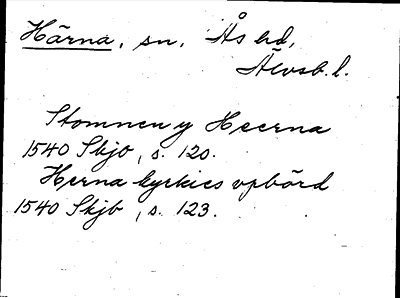 Härna, sn, Ås hd,
Älvsb. l.
Stomnen y Heerna
1540 Skjb, s. 120.
Herna kyrkies vpbörd
1540 Skjb, s. 123.